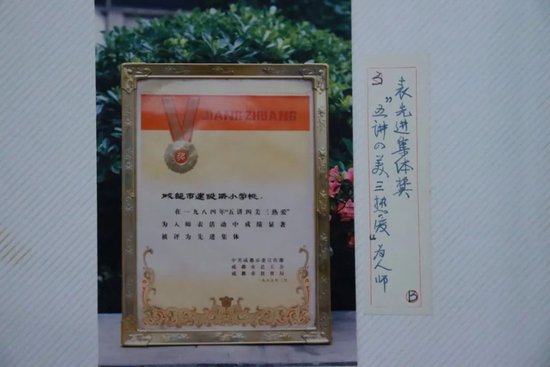 JIANG ZHUANG
奖
成都市建设路小学校:
在一九八四年“五讲四美三热爱”
为人师表活动中成绩显著
被评为先进集体
中共成都市委宣传部
成都市总工会
成都市教育局
一九八五年二月
“五讲四美三热爱”为人师
表先进集体奖